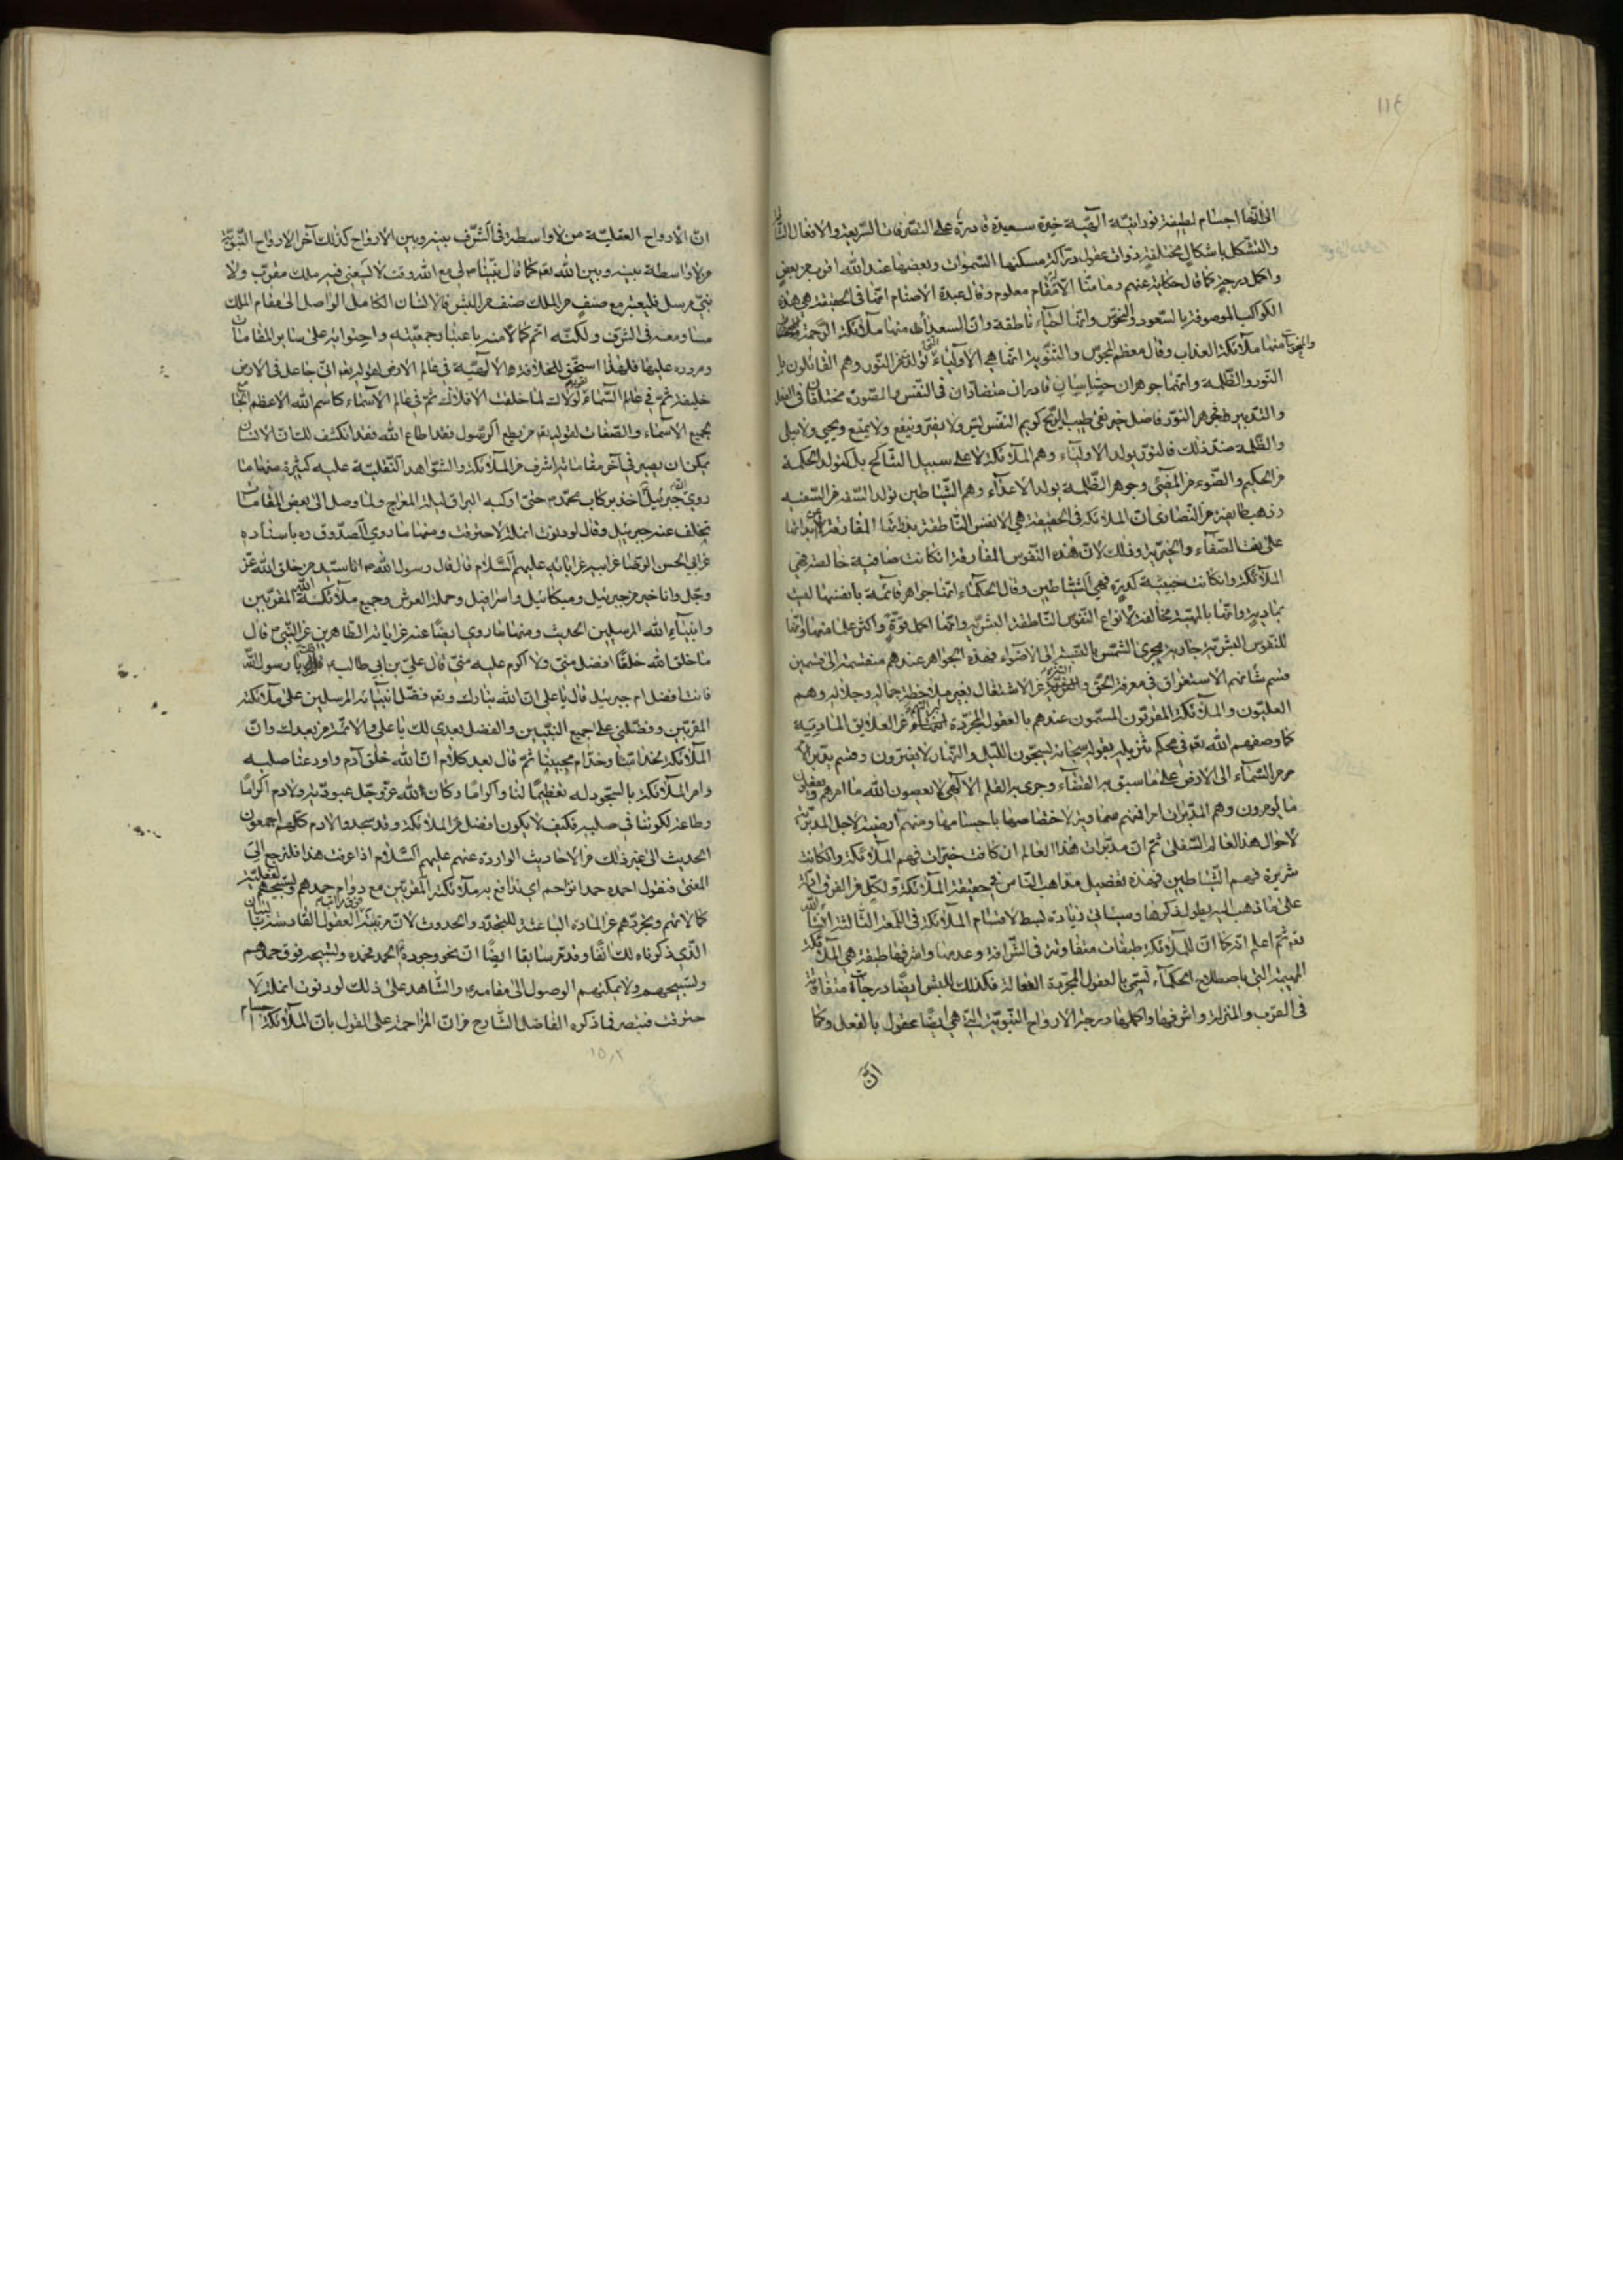 ١١٤
الى انها اجسام لطيفة نورانية آلهية خيرة سعيدة قادرة على التصرفات السريعة والافعال
والتشكل باشكال مختلفة ذوات عقول دراكة مسكنها السموات وبعضها عند الله اقرب من بعض
واكمل درجة كما قال حكاية عنهم وما منا الا له مقام معلوم وقال عبدة الاصنام انها فى الحقيقة هى هذه
الكواكب الموصوفة بالسعود والنحوس وانها احياء ناطقة وان السعد منها ملائكة الرحمة
والنحوسات منها ملائكة العذاب وقال معظم المجوس والثنوية انما هى الاولياء تولد من النور وهم القائلون
النور والظلمة وانهما جوهران حساسان قادران متضادان فى النفس والصورة مختلفان فى الفعل
والتدبير فجوهر النور فاضل خير نقى طيب الريح كريم النفس يسر ولا يضر وينفع ولا يمنع ويحيى ولا يبلى
والظلمة ضد ذلك فالنور يولد الاولياء وهم الملائكة لا على سبيل التناكح بل كتولد الحكمة
من الحكيم والضوء من المضئ وجوهر الظلمة يولد الاعداء وهم الشياطين تولد السفه من السفيه
وذهب طايفة من النصارى ان الملائكة فى الحقيقة هى الانفس الناطقة بذاتها المفارقة لابدانها
على نعت الصفاء والخيرية وذلك لان هذه النفوس المفارقة ان كانت صافية خالصة هى
الملائكة وان كانت خبيثة كدرة فهى الشياطين وقال الحكماء انها جواهر قائمة بانفسها ليست
بمادية وانها بالمهية مخالفة لانواع النفوس الناطقة البشرية وانها اكمل قوة واكثر علما منها وانها
للنفوس البشرية جارية مجرى الشمس بالنسبة الى الاضواء فهذه الجواهر عندهم منقسمة الى قسمين
قسم شانهم الاستغراق فى معرفة الحق عن الاشتغال بغير ملاحظة جماله وجلاله وهم
العليون والملائكة المقربون المسمون عندهم بالعقول المجردة عن العلايق المادية
كما وصفهم الله تعم فى محكم تنزيله بقوله سبحانه يسبحون الليل والنهار لا يفترون وقسم يدبر الامر
من السماء الى الارض على ما سبق به القضاء وجرى به القلم الالهى لا يعصون الله ما امرهم ويفعلون
ما يؤمرون وهم المدبرات امرا فمنهم سماوية لاختصاصها باجسامها ومنهم ارضية لاجل المدبرة
لاحوال هذا العالم السفلى ثم ان مدبرات هذا العالم ان كانت خيرات فهم الملائكة وان كانت
شريرة فهم الشياطين فهذه تفصيل مذاهب الناس فى حقيقة الملائكة ولكل من الفرق ادلة
على ما ذهب اليه يطول ذكرها وسياتى زيادة بسط لاقسام الملائكة فى اللمعة الثالثة انشاء الله
تعم ثم اعلم انه كما ان للملائكة طبقات متفاوتة فى الشرافة وعدمها واشرفها طبقة هى الملائكة
المهيمة التى باصطلاح الحكماء تسمى بالعقول المجردة الفعالة فكذلك للبشر ايضا درجات متفاوتة
فى القرب والمنزلة واشرفها واكملها درجة الارواح النبوية التى هى ايضا عقول بالفعل وكما
ان
ان الارواح العقلية من لا واسطة فى الشرف بينه وبين الارواح كذلك آخر الارواح النبوية
من لا واسطة بينه وبين الله تعم كما قال نبينا ص لى مع الله وقت لا يسعنى فيه ملك مقرب ولا
نبى مرسل فليعتبر مع صنف من الملك صنف من البشر فالانسان الكامل الواصل الى مقام الملك
مساو معه فى الشرف ولكنه اتم كمالا منه باعتبار جمعيته واحتوائه على ساير المقامات
ومروره عليها فلهذا استحق للخلافة الالهية فى عالم الارض لقوله تعم انى جاعل فى الارض
خليفة ثم فى عالم السماء لولاك لما خلقت الافلاك ثم فى عالم الاسماء كاسم الله الاعظم
بجميع الاسماء والصفات لقوله تعم من يطع الرسول فقد اطاع الله فقد انكشف لك ان الانسان
يمكن ان يصير فى آخر مقاماته اشرف من الملائكة والشواهد النقلية عليه كثيرة منها ما
روى ان جبرئيل اخذ بركاب محمد ص حتى اركبه البراق ليلة المعراج ولما وصل الى بعض المقامات
تخلف عنه جبرئيل وقال لو دنوت انملة لاحترقت ومنها ما روى الصدوق ره باسناده
عن ابى الحسن الرضا عن ابيه عن ابائه عليهم السلام قال قال رسول الله ص انا سيد من خلق الله عز
وجل وانا خير من جبرئيل وميكائيل واسرافيل وحملة العرش وجميع ملائكة الله المقربين
وانبياء الله المرسلين الحديث ومنها ما روى ايضا عنه عن ابائه الطاهرين عن النبى ص قال
ما خلق الله خلقا افضل منى ولا اكرم عليه منى قال على بن ابى طالب يا رسول الله
فانت افضل ام جبرئيل قال يا على ان الله تبارك وتعم فضل انبيائه المرسلين على ملائكته
المقربين وفضلنى على جميع النبيين والفضل بعدى لك يا على والائمة من بعدك وان
الملائكة لخدامنا وخدام محبينا ثم قال بعد كلام ان الله خلق آدم واودعنا صلبه
وامر الملائكة بالسجود له تعظيما لنا واكراما وكان لله عز وجل عبودية ولادم اكراما
وطاعة لكوننا فى صلبه فكيف لا يكون افضل من الملائكة وقد سجدوا لادم كلهم اجمعون
الحديث الى غير ذلك من الاحاديث الواردة عنهم عليهم السلام اذا عرفت هذا فلنرجع الى
المعنى فنقول احمده حمدا نزاحم اى ندافع به ملائكته المقربين مع دوام حمدهم وتسبيحهم لفعلية
كمالاتهم وتجردهم عن المادة الباعثة للتجدد والحدوث لان مرتبة العقول القادسة
الذى ذكرناه لك انفا وقد مر سابقا ايضا ان نحو وجوده الحمد فحمده وتسبيحه فوق حمدهم
وتسبيحهم ولا يمكنهم الوصول الى مقامه والشاهد على ذلك لو دنوت انملة لا
حترقت فتبصر فما ذكره الفاضل الشارح من ان المزاحمة على القول بان الملائكة اجسام
١٥٫٢